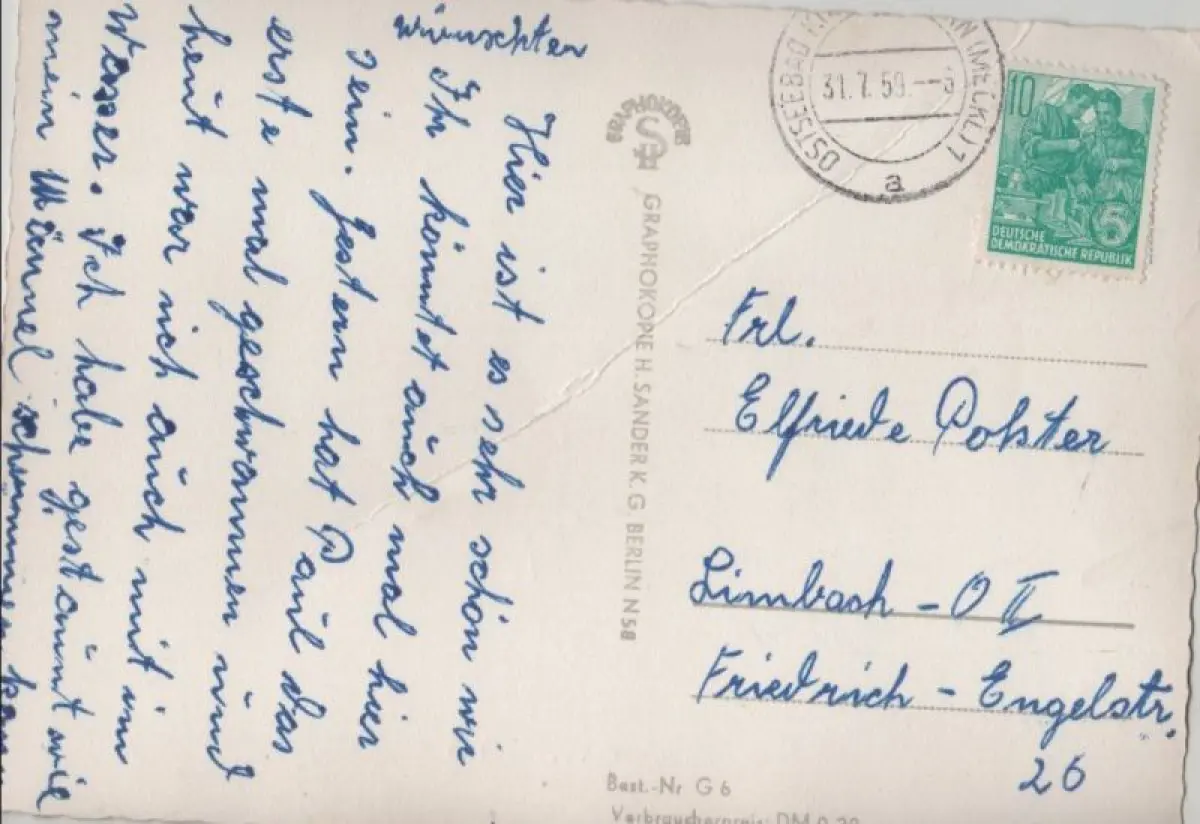 Hier ist es sehr schön wir
wünschten
Ihr könntet auch mal hier
sein. Gestern hat Paul das
erste mal geschwommen und
heut war ich auch mit im
Wasser. Ich habe gestaunt wie
mein Männel schwimmen
GRAPHOKOPIE
GRAPHOKOPIE H. SANDER K.G. BERLIN N 58
OSTSEEBAD (MECKL) 1
31.7.59
a
10
5
DEUTSCHE
DEMOKRATISCHE REPUBLIK
Frl.
Elfriede Polster
Limbach - O II
Friedrich - Engelstr.
26
Best.-Nr G 6
Verbraucherpreis: DM